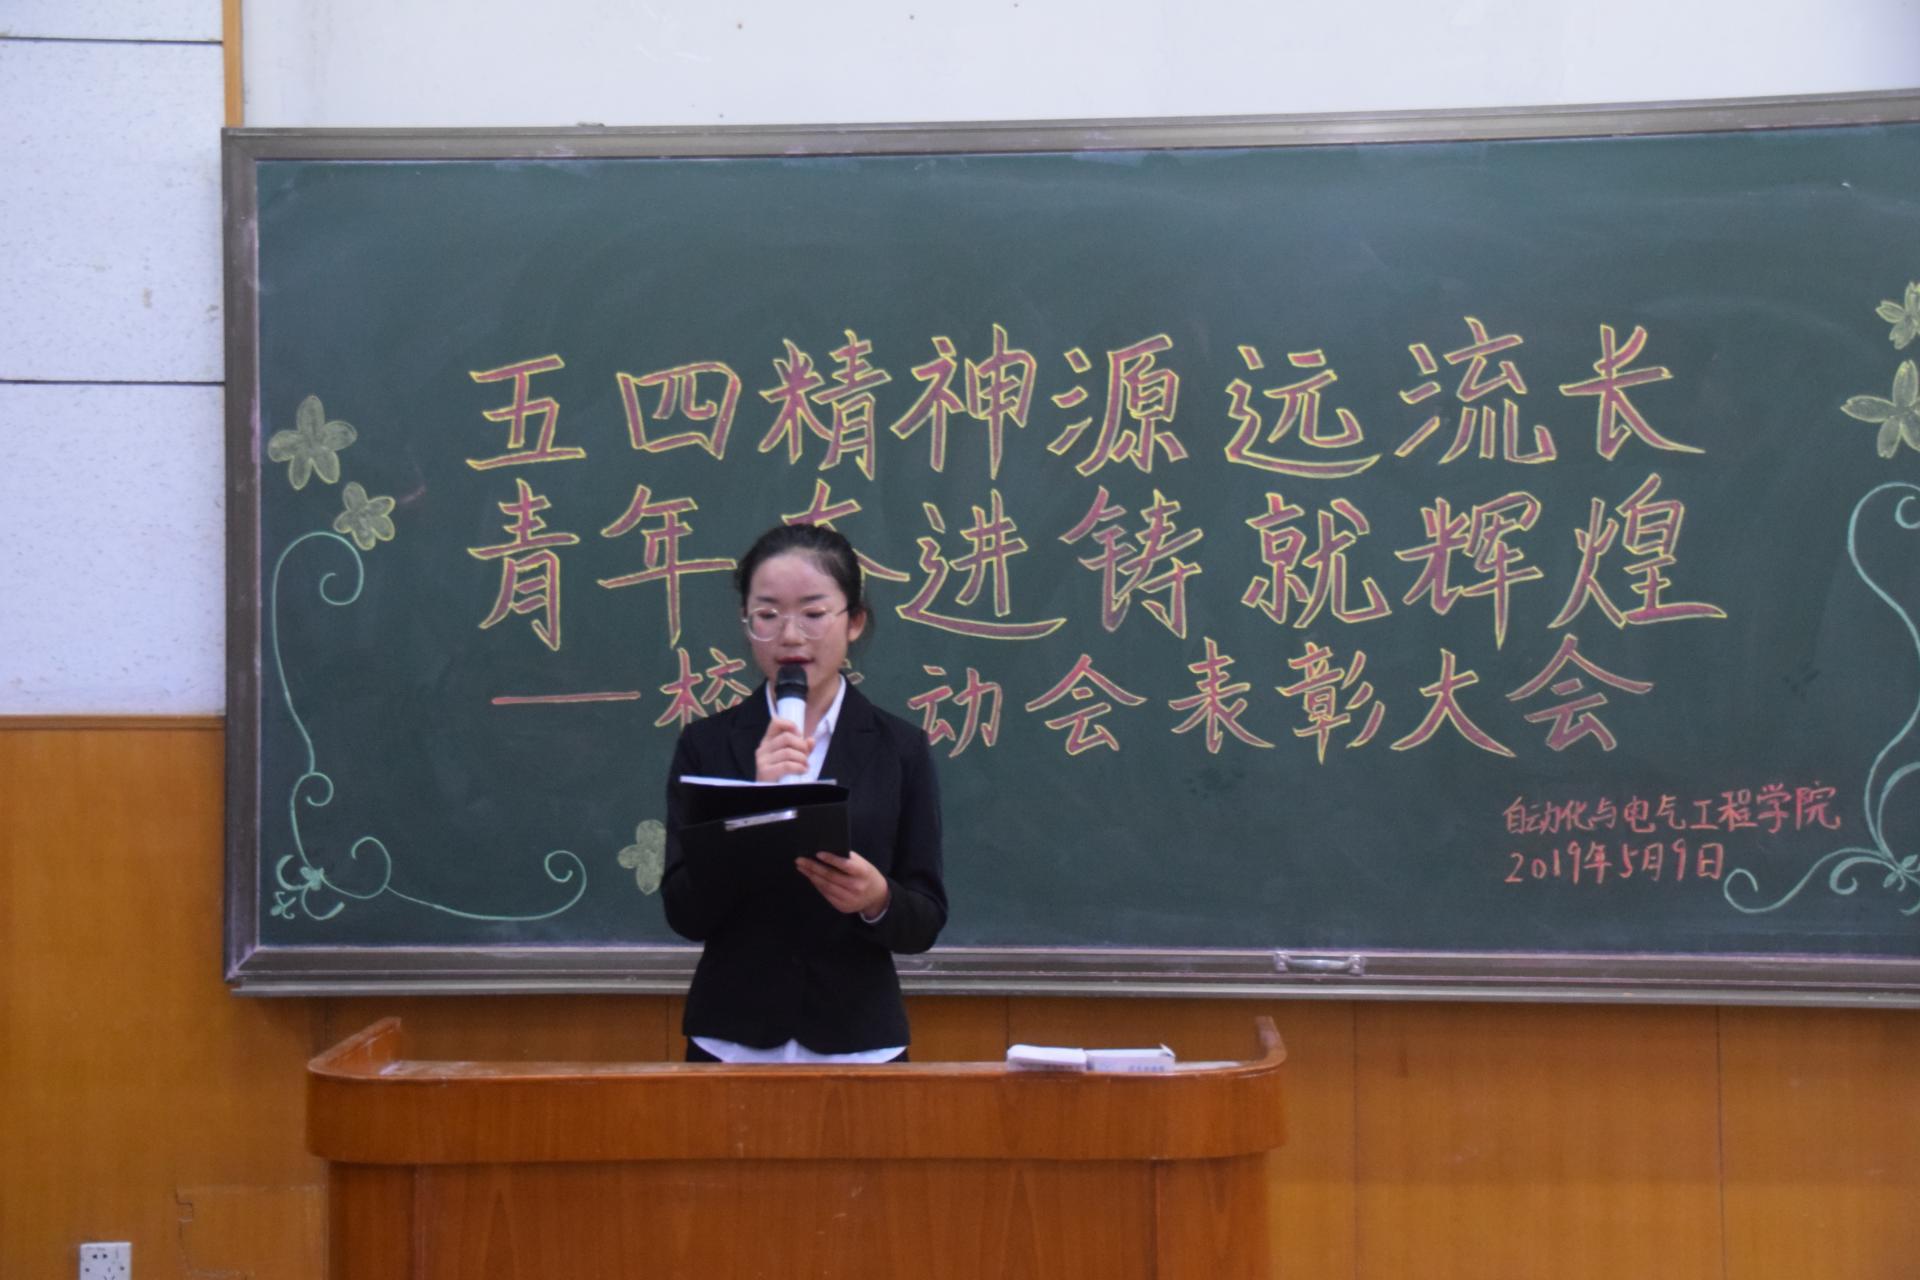 五四精神源远流长
青年奋进铸就辉煌
——校运动会表彰大会
自动化与电气工程学院
2019年5月9日